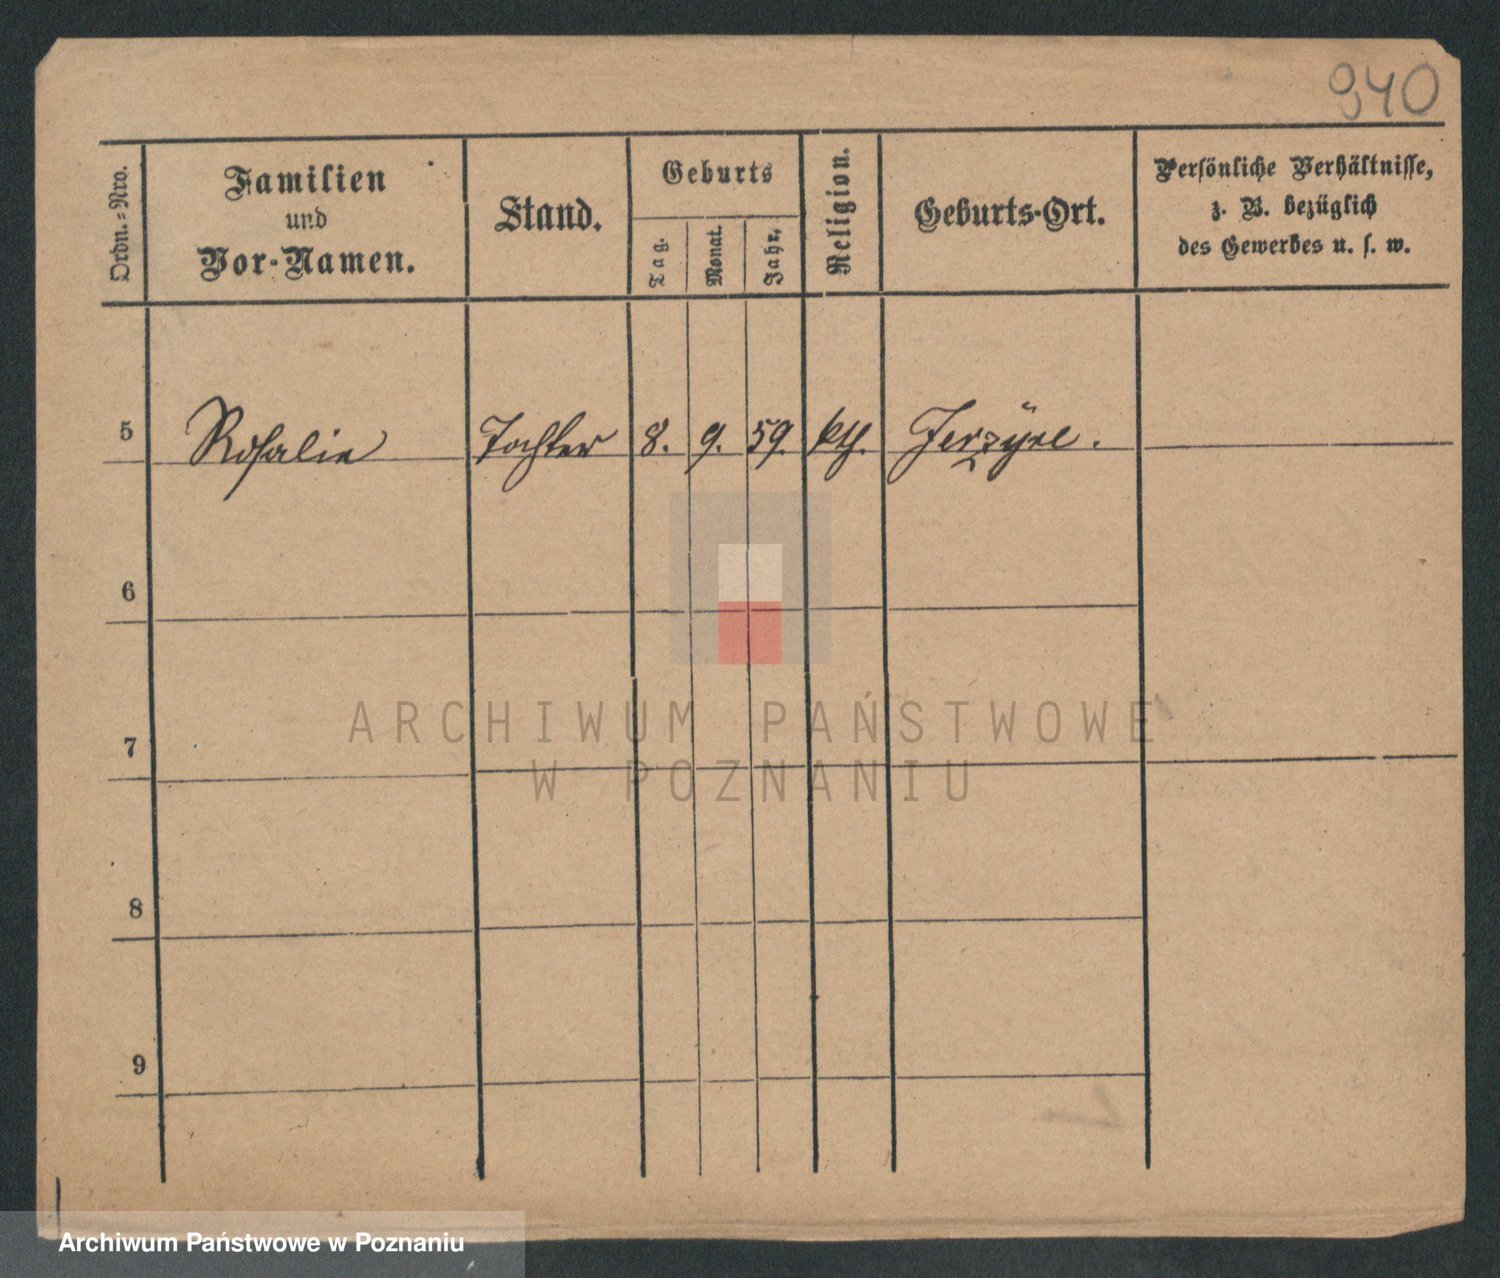 940
Ordn.=Nro.
Familien
und
Vor-Namen.
Stand.
Geburts
Tag.
Monat.
Jahr.
Religion.
Geburts-Ort.
Persönliche Verhältnisse,
z. B. bezüglich
des Gewerbes u. s. w.
5 Rosalie Tochter 8. 9. 59. kth.
6
7
8
9
ARCHIWUM PAŃSTWOWE
W POZNANIU
Archiwum Państwowe w Poznaniu